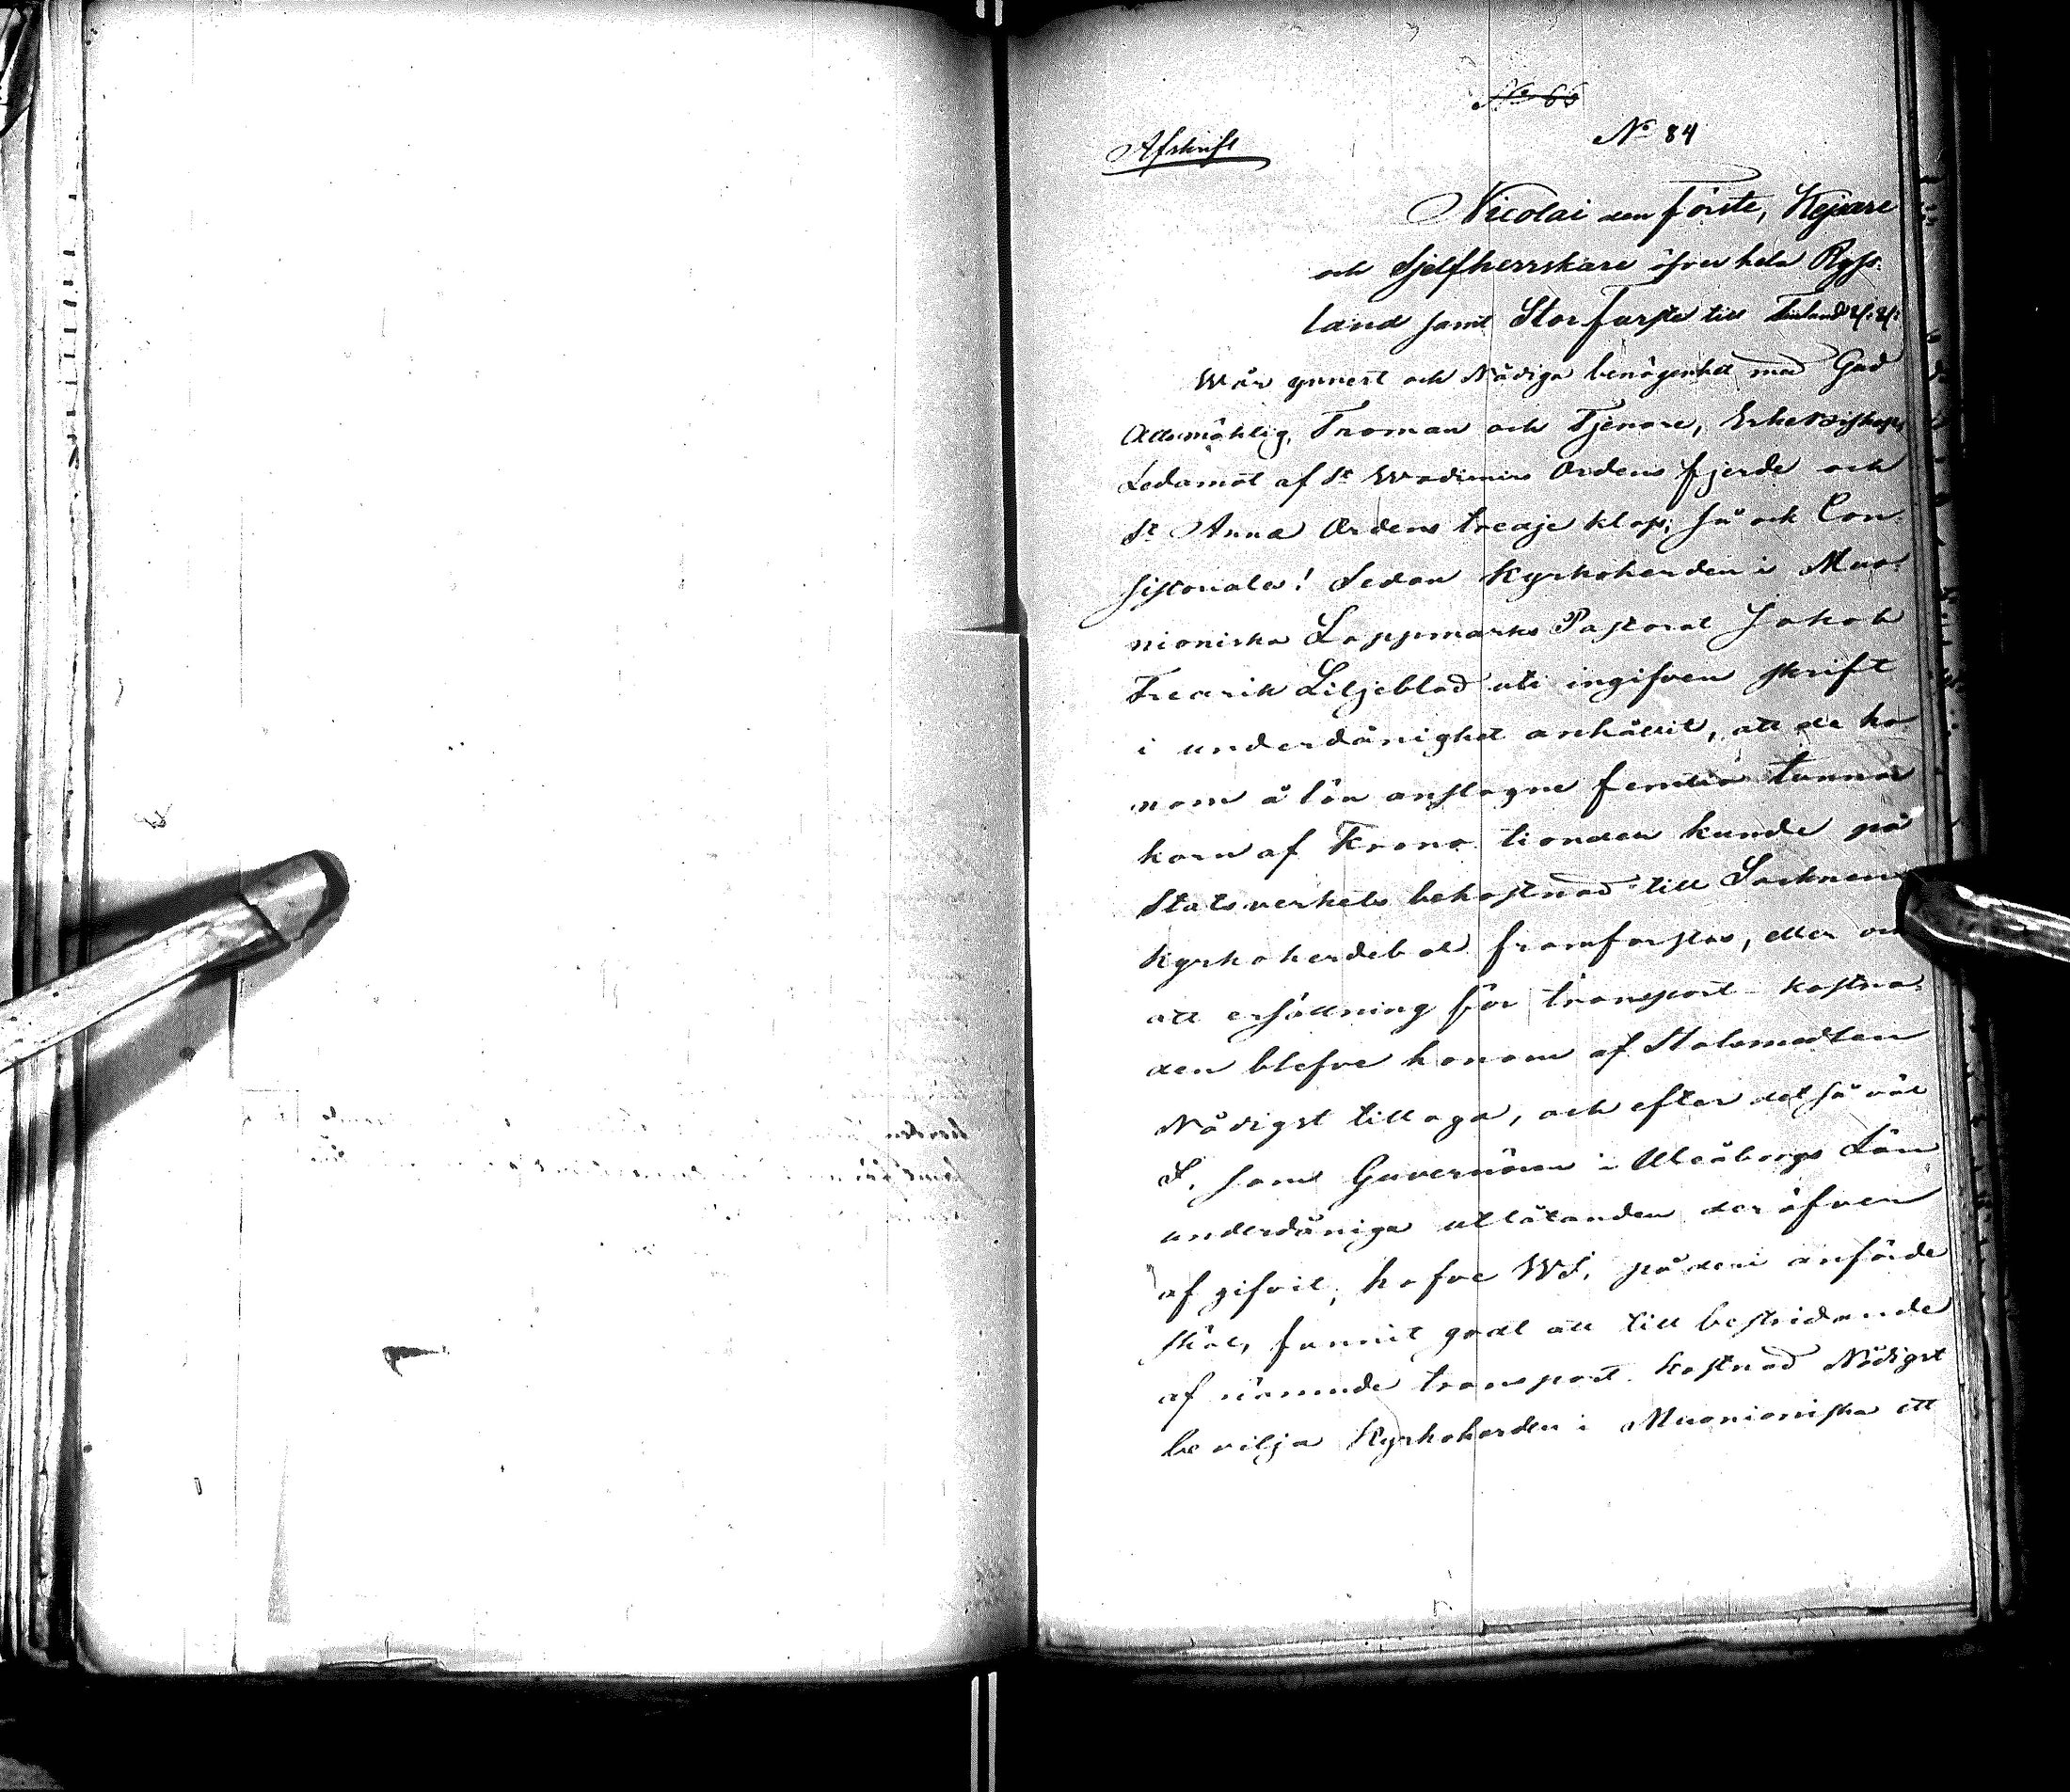 No 66
No 84
Afskrift
Nicolai den förste, Kejsare
och Sjelfherrskare öfver hela Ryss-
land samt Stor Furste till Finland &. &.
Wår ynnest och Nådiga benägenhet med Gud
Allsmäktig, Troman och Tjenare, Erkebiskop,
Ledamot af St Wadimirs Ordens fjerde och
St Anna Ordens tredje klass; så ock Con-
sistoriales! Sedan Kyrkoherden i Muo-
nioniska Lappmarks Pastorat Jakob
Fredrik Liljeblad uti ingifven skrift
i underdånighet anhållit, att de ho-
nom å lön anslagne femtio tunnor
korn af Krono tionden kunde på
Statsverkets bekostnad till Socknens
Kyrkoherdebol framforslas, eller ock
att ersättning för transport kostna-
den blefve honom af Statsmedlen
Nådigst tillagd, och efter det så väl
I, som Guvernören i Uleåborgs Län
underdåniga utlåtanden deröfver
af gifvit, hafve WI, på deri anförde
skäl, funnit godt att till bestridande
af nämnde transport kostnad Nådigst
bevilja Kyrkoherden i Muonioniska ett